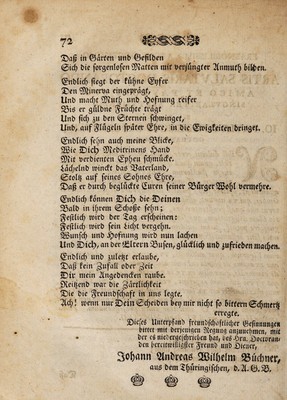 72
Daß in Gärten und Gefilden
Sich die sorgenlosen Matten mit verjüngter Anmuth bilden.
Endlich siegt der kühne Eyfer
Den Minerva eingeprägt,
Und macht Muth und Hofnung reifer
Bis er güldne Früchte trägt
Und sich zu den Sternen schwinget,
Und, auf Flügeln später Ehre, in die Ewigkeiten dringet.
Endlich sehn auch meine Blicke,
Wie Dich Meditrinens Hand
Mit verdienten Epheu schmücke.
Lächelnd winckt das Vaterland,
Stolz auf seines Sohnes Ehre,
Daß er durch beglückte Curen seiner Bürger Wohl vermehre.
Endlich können Dich die Deinen
Bald in ihrem Schoße sehn;
Festlich wird der Tag erscheinen:
Festlich wird sein Licht vergehn.
Wunsch und Hofnung wird nun lachen
Und Dich, an der Eltern Busen, glücklich und zufrieden machen.
Endlich und zuletzt erlaube,
Daß kein Zufall oder Zeit
Dir mein Angedencken raube.
Reitzend war die Zärtlichkeit
Die die Freundschaft in uns legte.
Ach! wenn nur Dein Scheiden bey mir nicht so bittern Schmertz
erregte.
Dieses Unterpfand freundschaftlicher Gesinnungen
bittet mit derjenigen Regung anzunehmen, mit
der es niedergeschrieben hat, des Hrn. Doctoran-
den bereitwilligster Freund und Diener,
Johann Andreas Wilhelm Büchner,
aus dem Thüringischen, d. A. G. B.